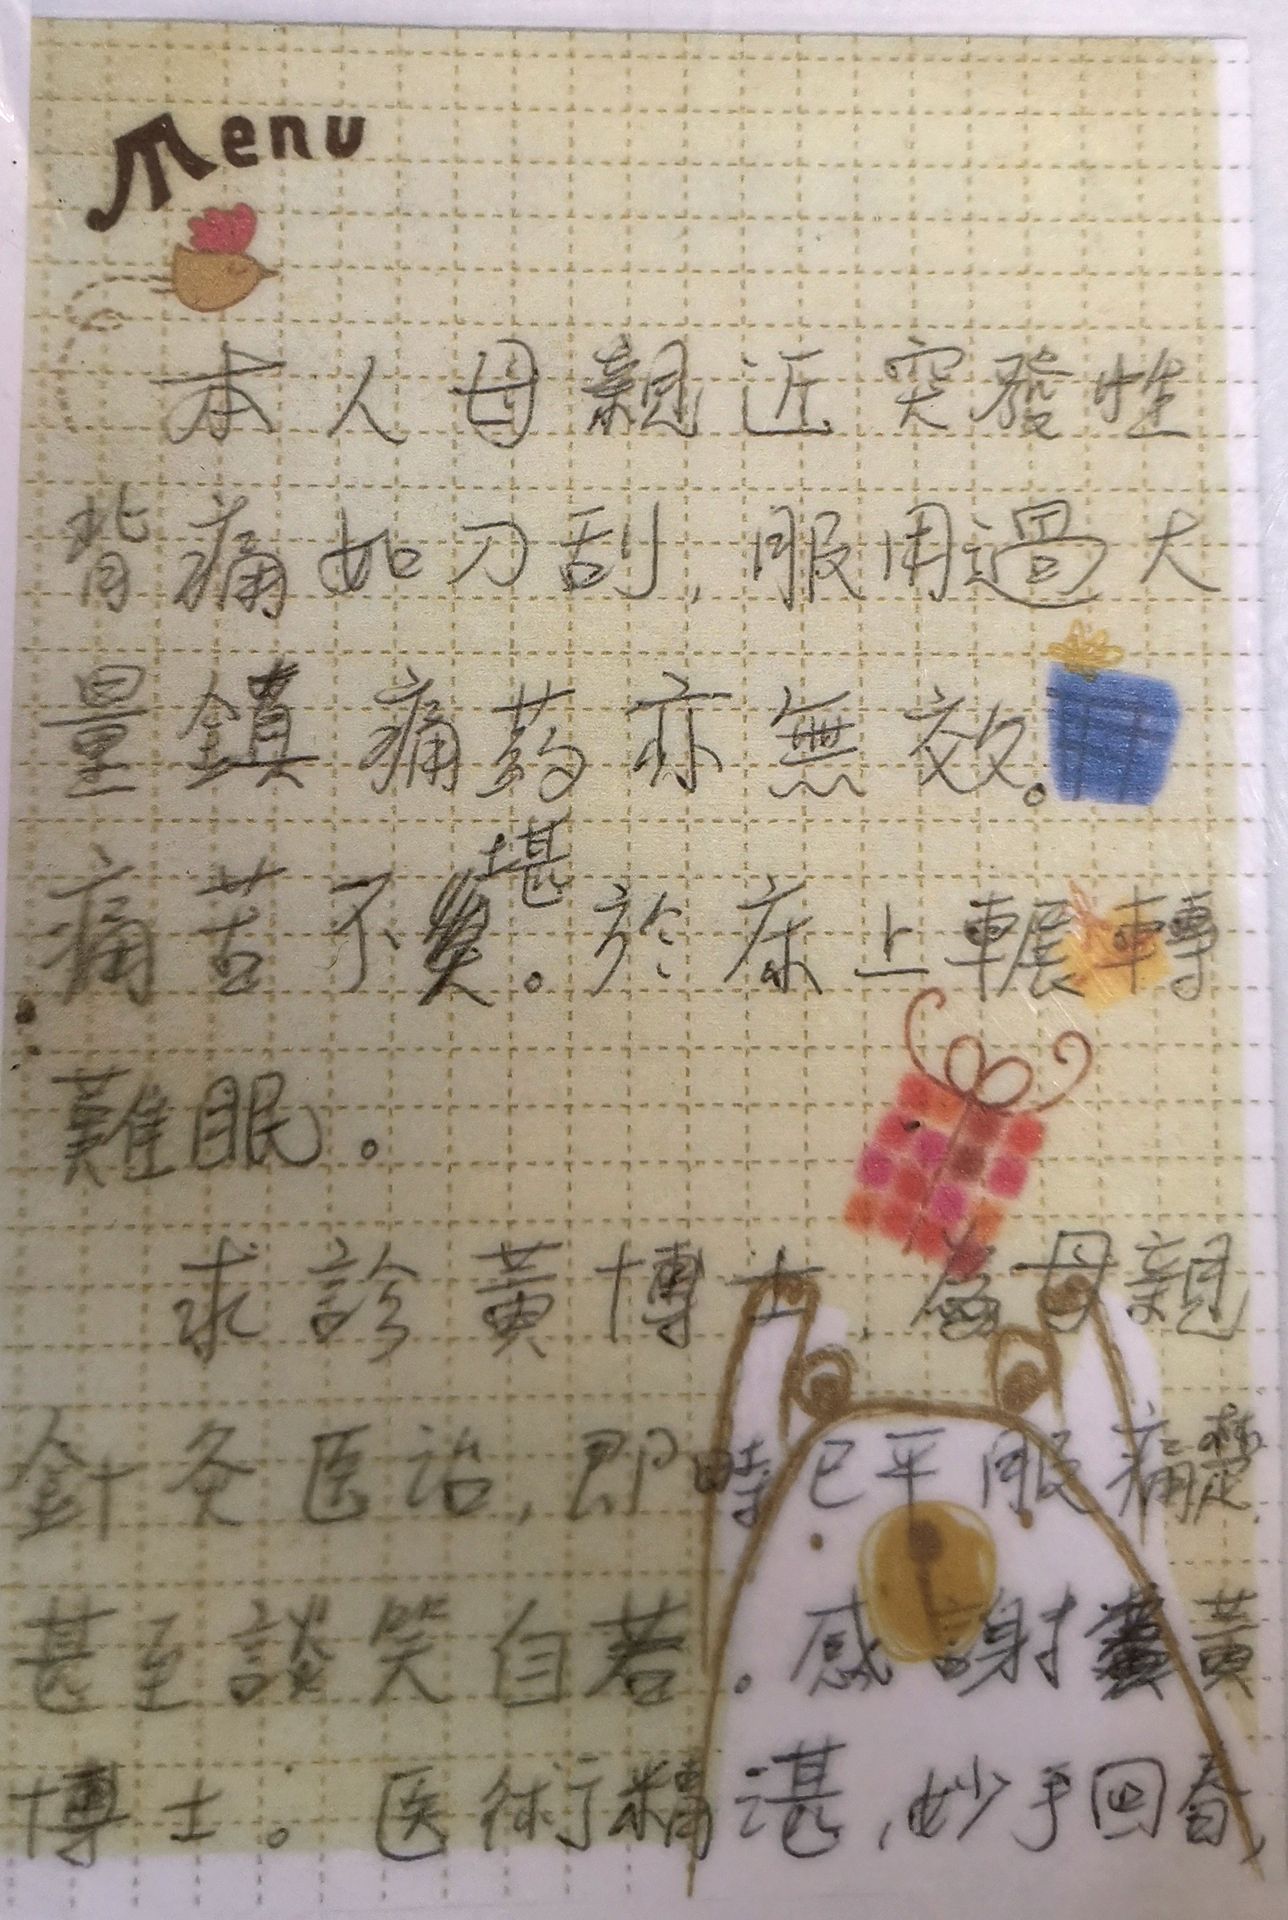 Menu
本人母親近突發性
背痛如刀刮,服用過大
量鎮痛药亦無效。
痛苦不堪。於床上輾轉
難眠。
求診黃博士,為母親
針灸医治,即時已平服痛楚
甚至談笑自若。感謝黃
博士。医術精湛,妙手回春